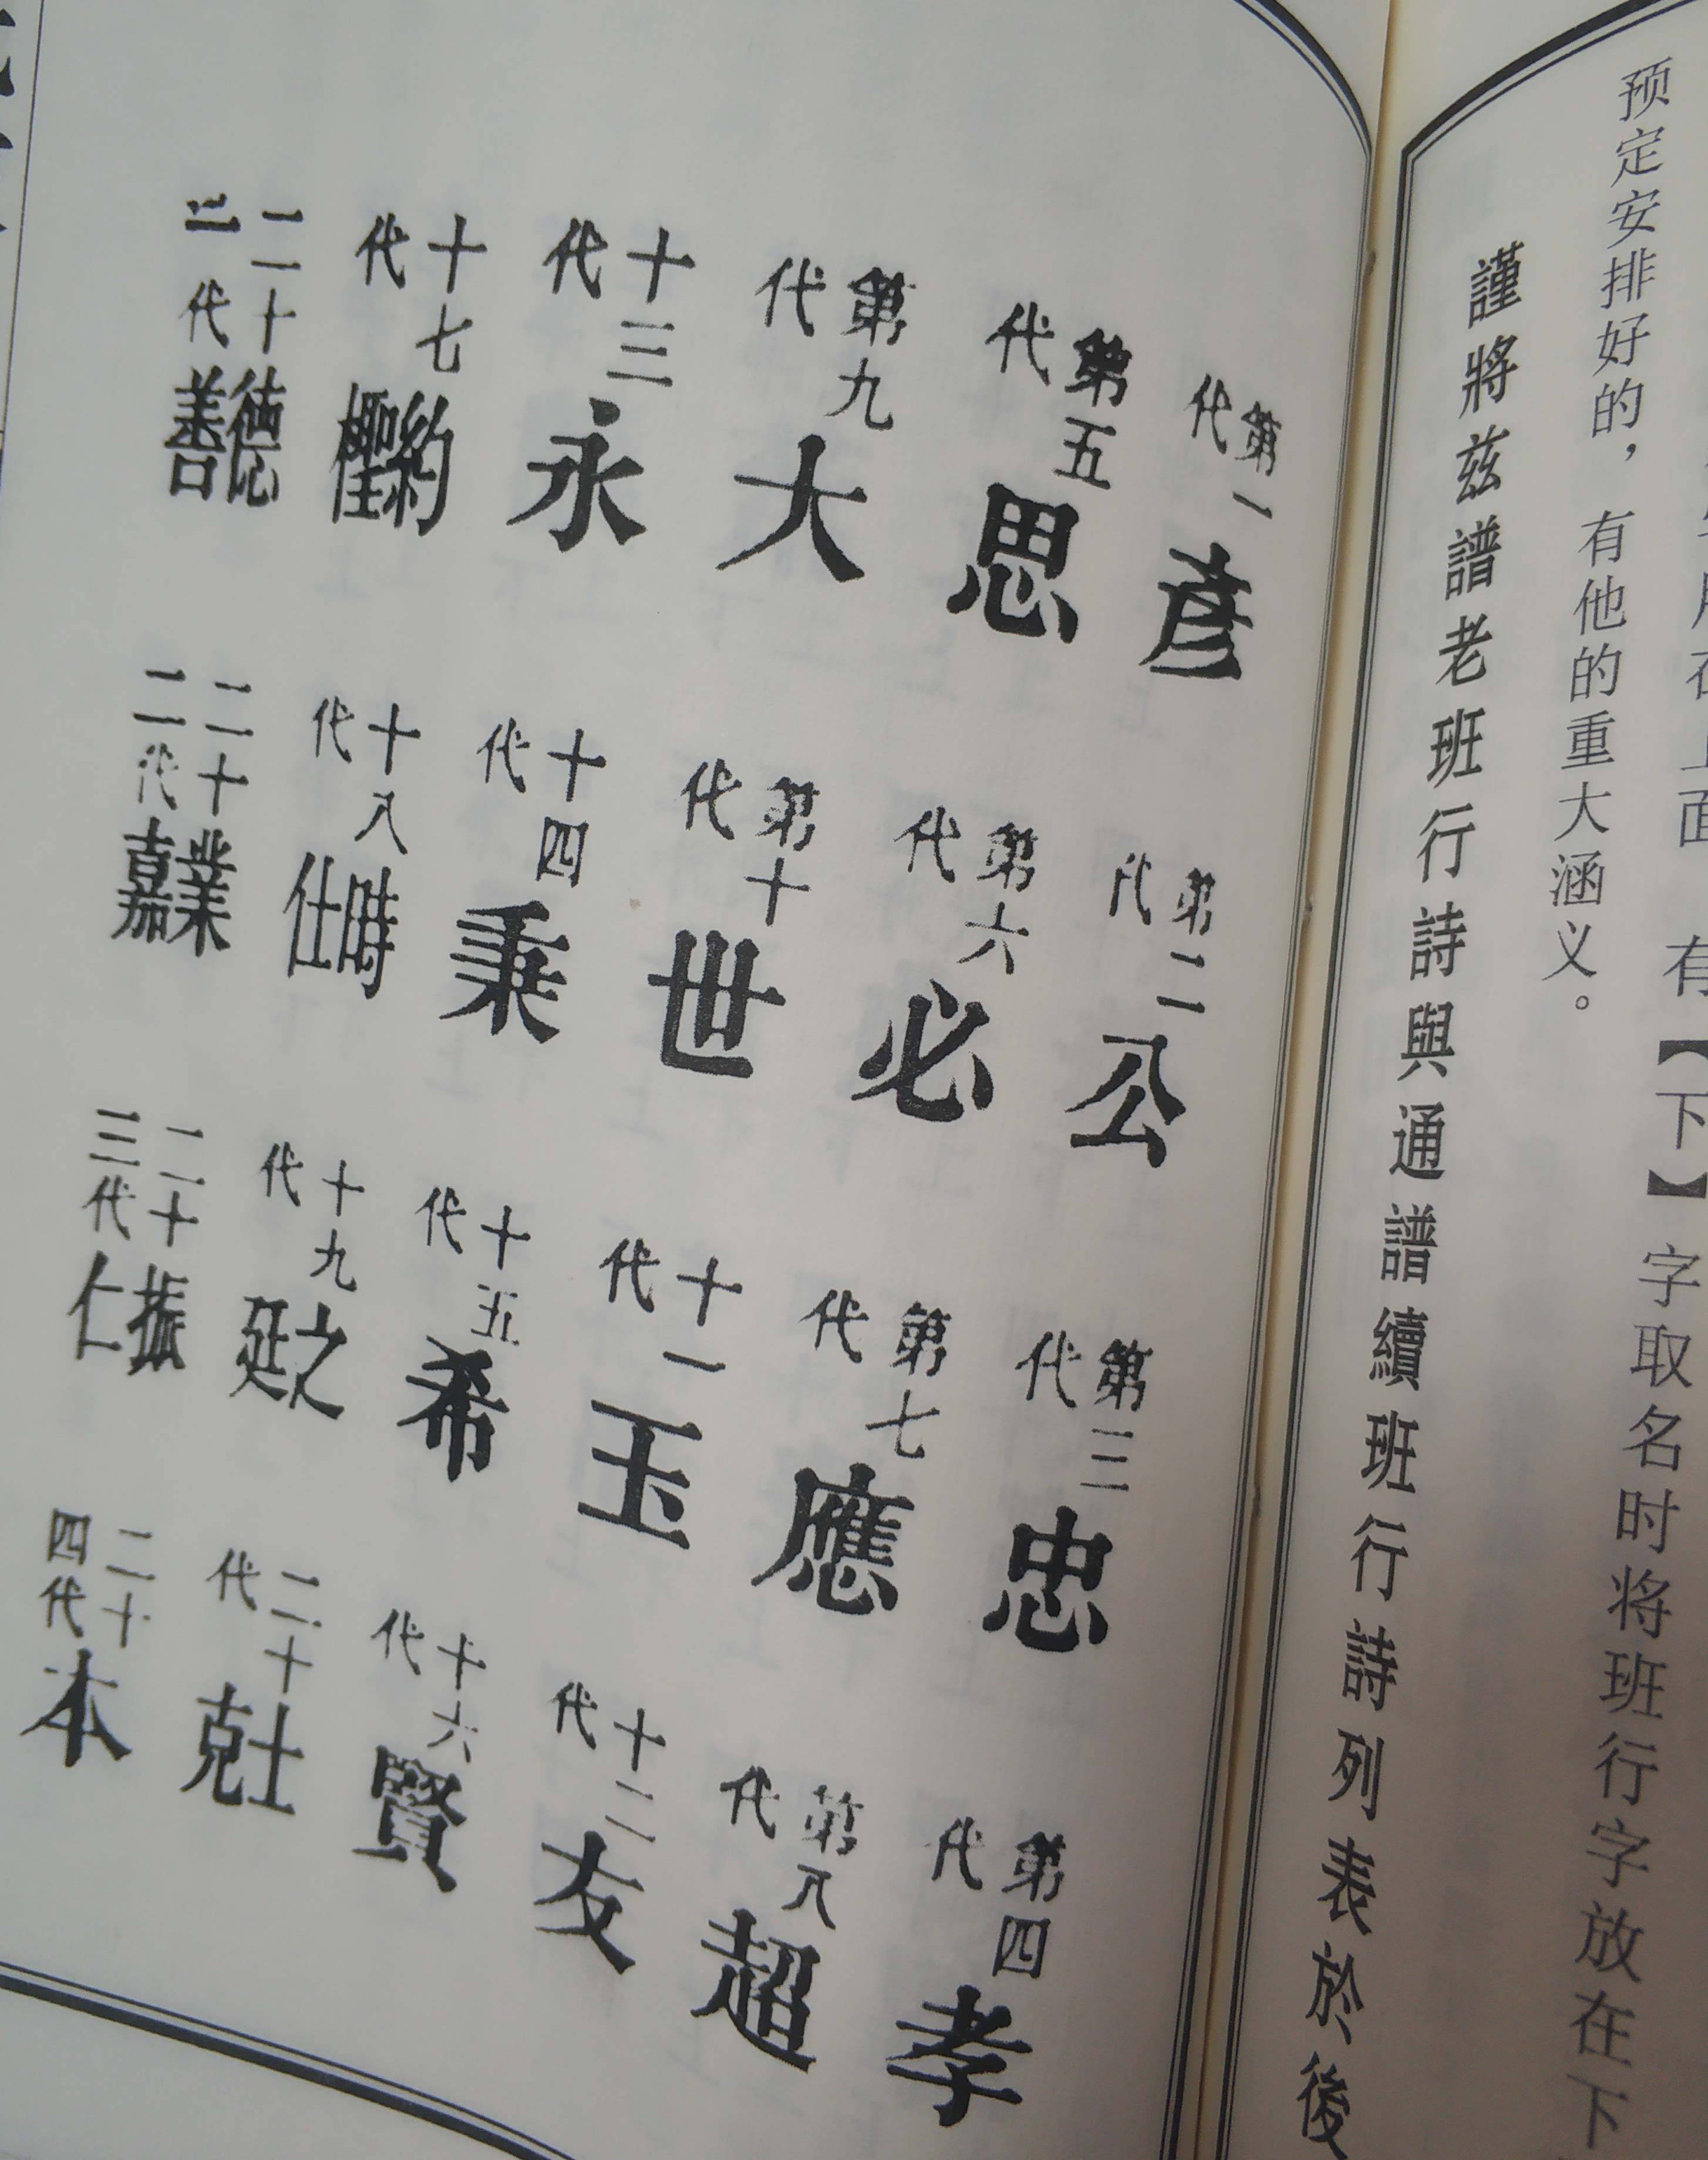 有【下】字取名时将班行字放在下
预定安排好的，有他的重大涵义。
謹將兹譜老班行詩與通譜續班行詩列表於後
第一代 彦
第二代 公
第三代 忠
第四代 孝
第五代 思
第六代 必
第七代 應
第八代 超
第九代 大
第十代 世
十一代 玉
十二代 友
十三代 永
十四代 秉
十五代 希
十六代 賢
十七代 約
十八代 時仕
十九代 之延
二十代 士克
二十一代 德善
二十二代 業嘉
二十三代 振仁
二十四代 本